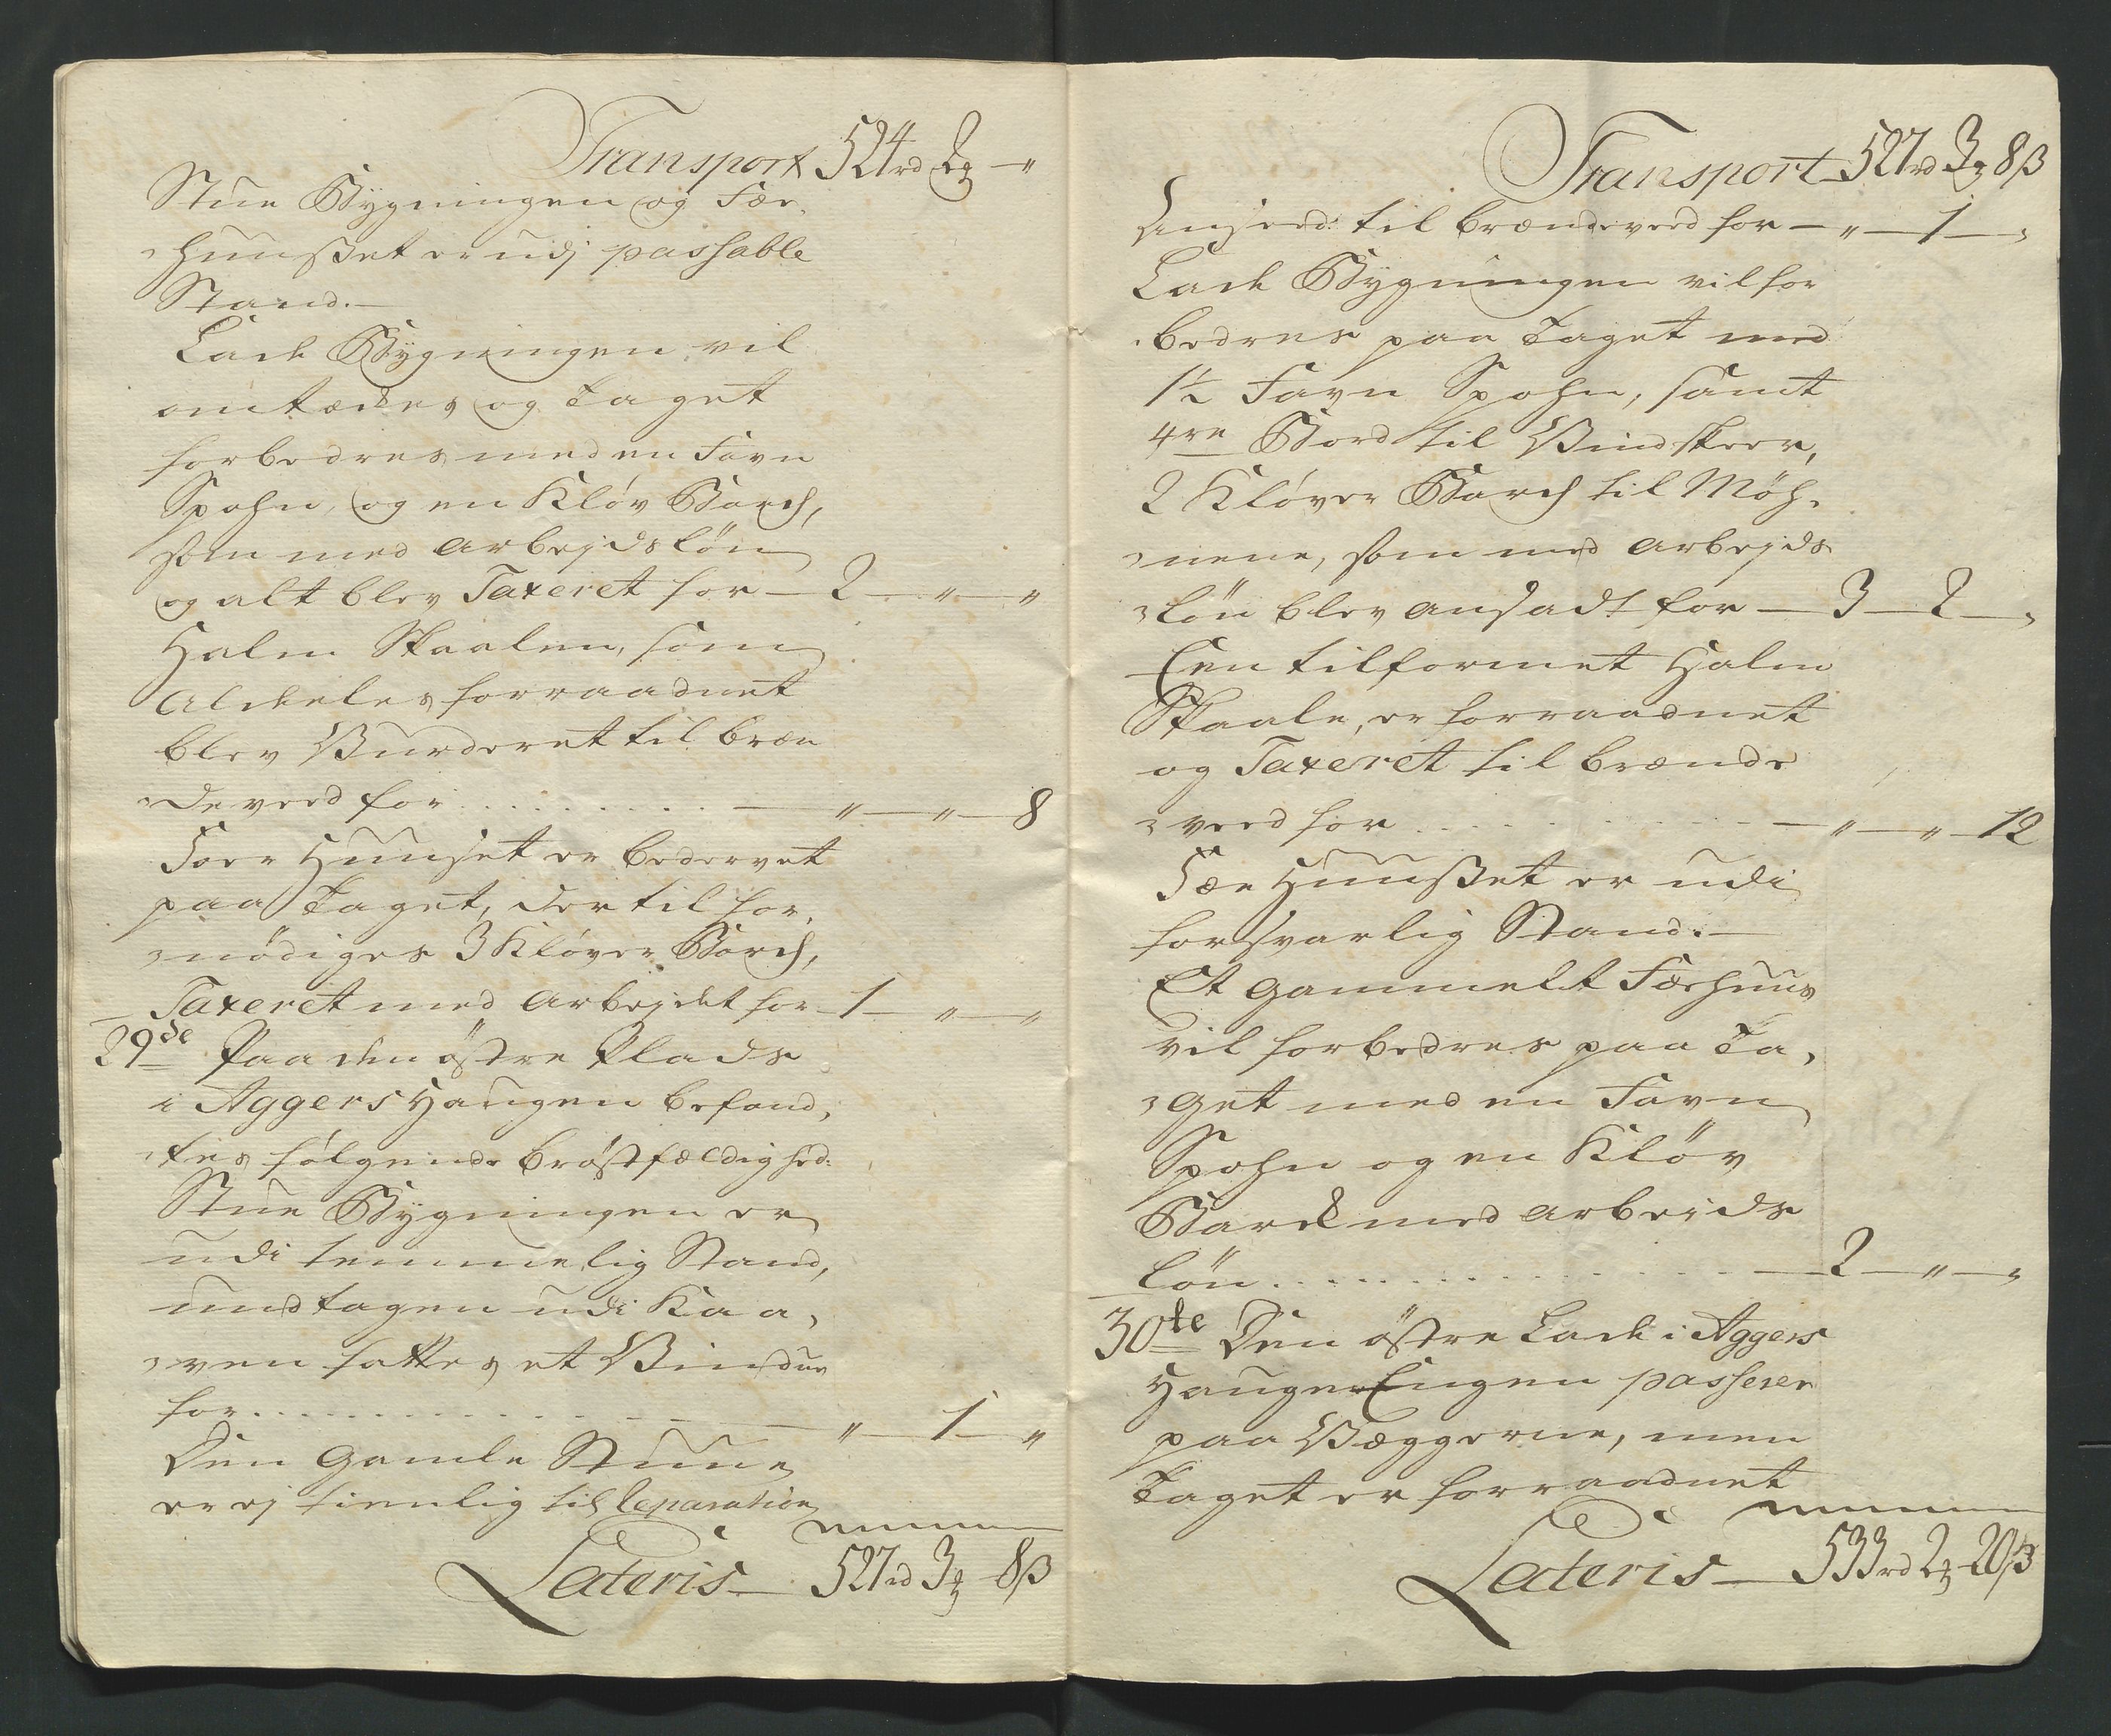 Transport 524rd 2 ʒ — "
Stue Bygningen og Fæe-
huusset er udj passable
Stand. —
Lade Bygningen vil
omtækkes og Taget
forbedres med en Favn
Spohn, og en Kløv Barch,
som med Arbejdsløn
og alt blev Taxeret for — 2 — " — "
Halm Skaalen, som
Aldeeles forraadnet
blev Vurderet til bræn
deveed for . . . . . . . . — " — " — 8
Foer Huuset er bedervet
paa Taget, dertil for-
nødiges 3 Kløver Barch,
Taxeret med Arbejdet for — 1 — " — "
29de Paa den østre Plads
i Aggers Haugen befand-
tes følgende brøstfældighed:
Stue Bygningen er
udi temmelig Stand,
undtagen udi Kaa-
ven fattes et Vindue
for . . . . . . . . — " — 1 — "
Den gamle Stuue
er ej tienlig til Reparation
Lateris — 527rd 3 ʒ 8 ß
Transport 527rd 3 ʒ 8 ß
Anseed: til brændeveed for — " — 1 — "
Lade Bygningen vil for
bedres paa Taget med
1½ Favn Spohn, samt
4re Bord til Vindskeer,
2 Kløver Barch til Møh-
nene, som med Arbejds
løn blev ansadt for — 3 — 2 — "
Een tilformet Halm
Skaale, er forraadnet
og Taxeret til brænde
veed for . . . . . . . . — " — " — 12
Fæe Huusset er udi
forsvarlig Stand. —
Et gammelt Fæehuus
vil forbedres paa Ta-
get med en Favn
Spohn og en Kløv
Bark med Arbeids
løn . . . . . . . . — 2 — " — "
30te Den østre Lade i Aggers
Hauge Engen passerer
paa Væggerne, men
Taget er forraadnet
Lateris — 533rd 2 ʒ 20 ß